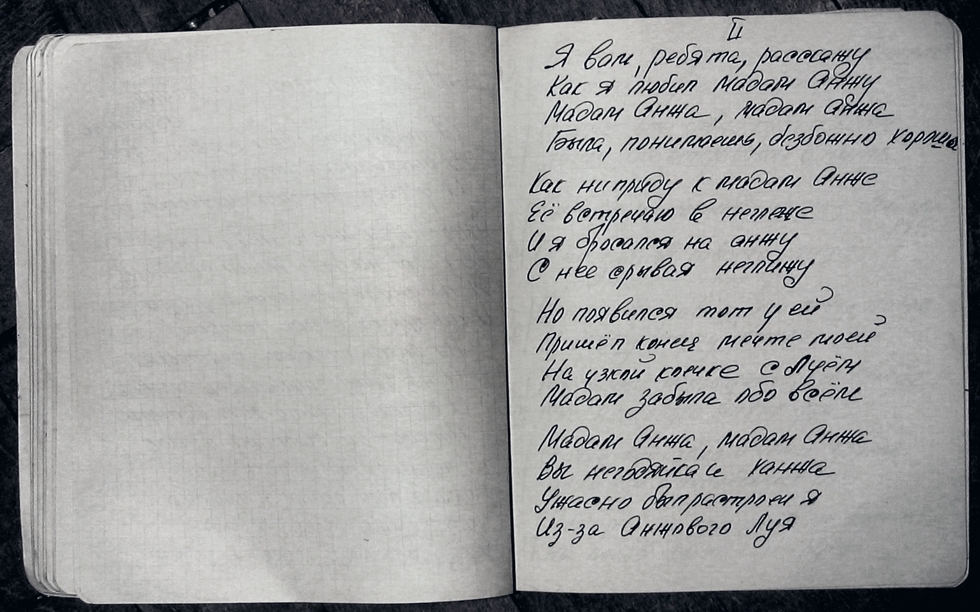 II
Я вам, ребята, расскажу
Как я любил мадам Анжу
Мадам Анжа, мадам Анжа
Была, понимаешь, безбожно хороша
Как ни приду к мадам Анже
Её встречаю в неглеже
И я бросался на анжу
С нее срывая неглижу
Но появился тот у ей
Пришёл конец мечте моей
На узкой коечке с Луём
Мадам забыла обо всём
Мадам Анжа, мадам Анжа
Вы негодяйка и ханжа
Ужасно был расстроен я
Из-за Анжового Луя